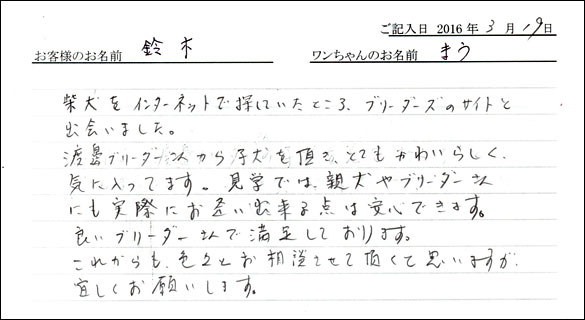 ご記入日 2016年 3月 19日
お客様のお名前 鈴木 ワンちゃんのお名前 まう
柴犬をインターネットで探していたところ、ブリーダーズのサイトと
出会いました。
渡邉ブリーダーさんから子犬を頂き、とてもかわいらしく、
気に入ってます。見学では、親犬やブリーダーさん
にも実際にお逢い出来る点は安心できます。
良いブリーダーさんで満足しております。
これからも、色々とお相談させて頂くと思いますが、
宜しくお願いします。